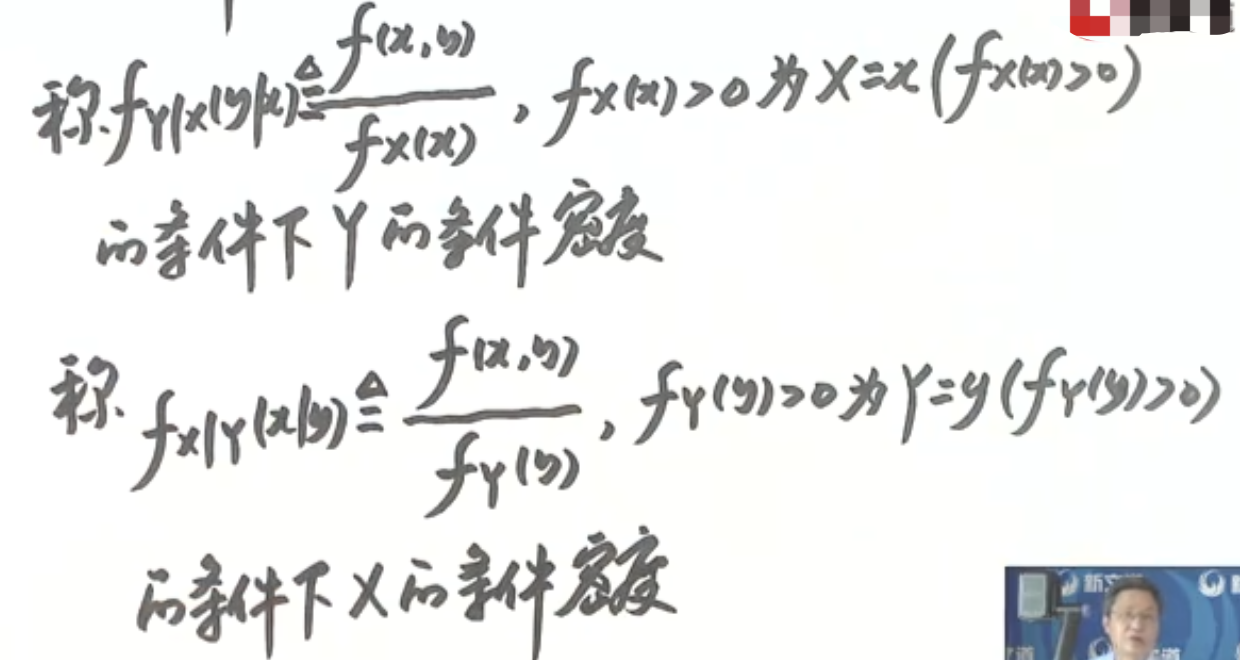 称 f_{Y|X}(y|x) ≜ f(x,y) / f_X(x) , f_X(x)>0 为 X=x (f_X(x)>0)
的条件下 Y 的条件密度
称 f_{X|Y}(x|y) ≜ f(x,y) / f_Y(y) , f_Y(y)>0 为 Y=y (f_Y(y)>0)
的条件下 X 的条件密度
新文道